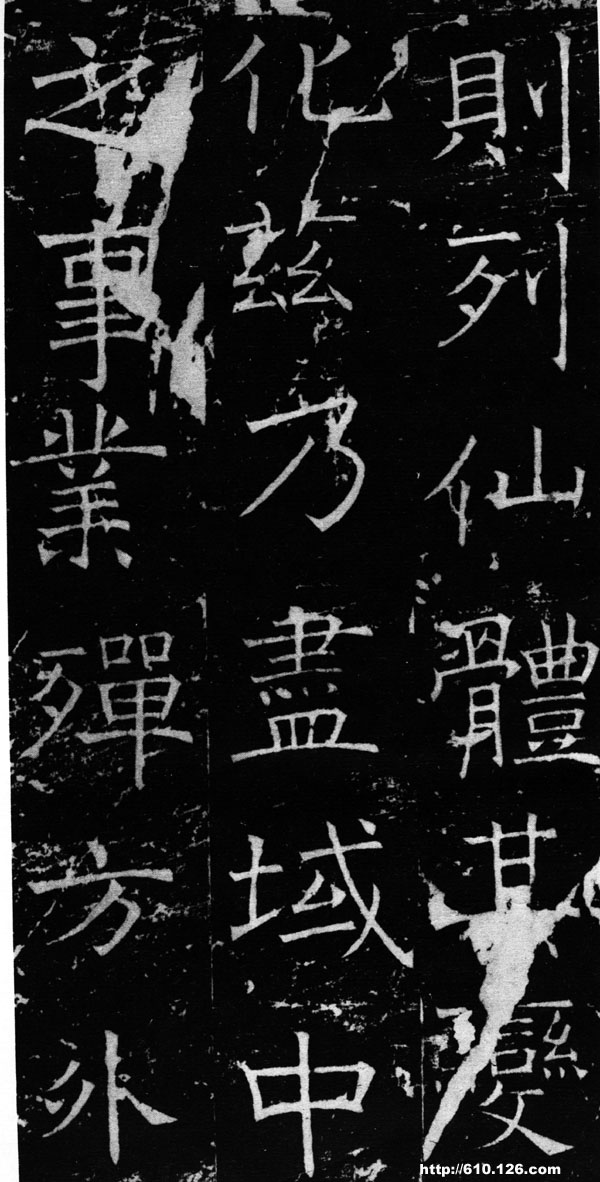 則列仙體其變
化茲乃盡域中
之事業殫方外
http://610.126.com